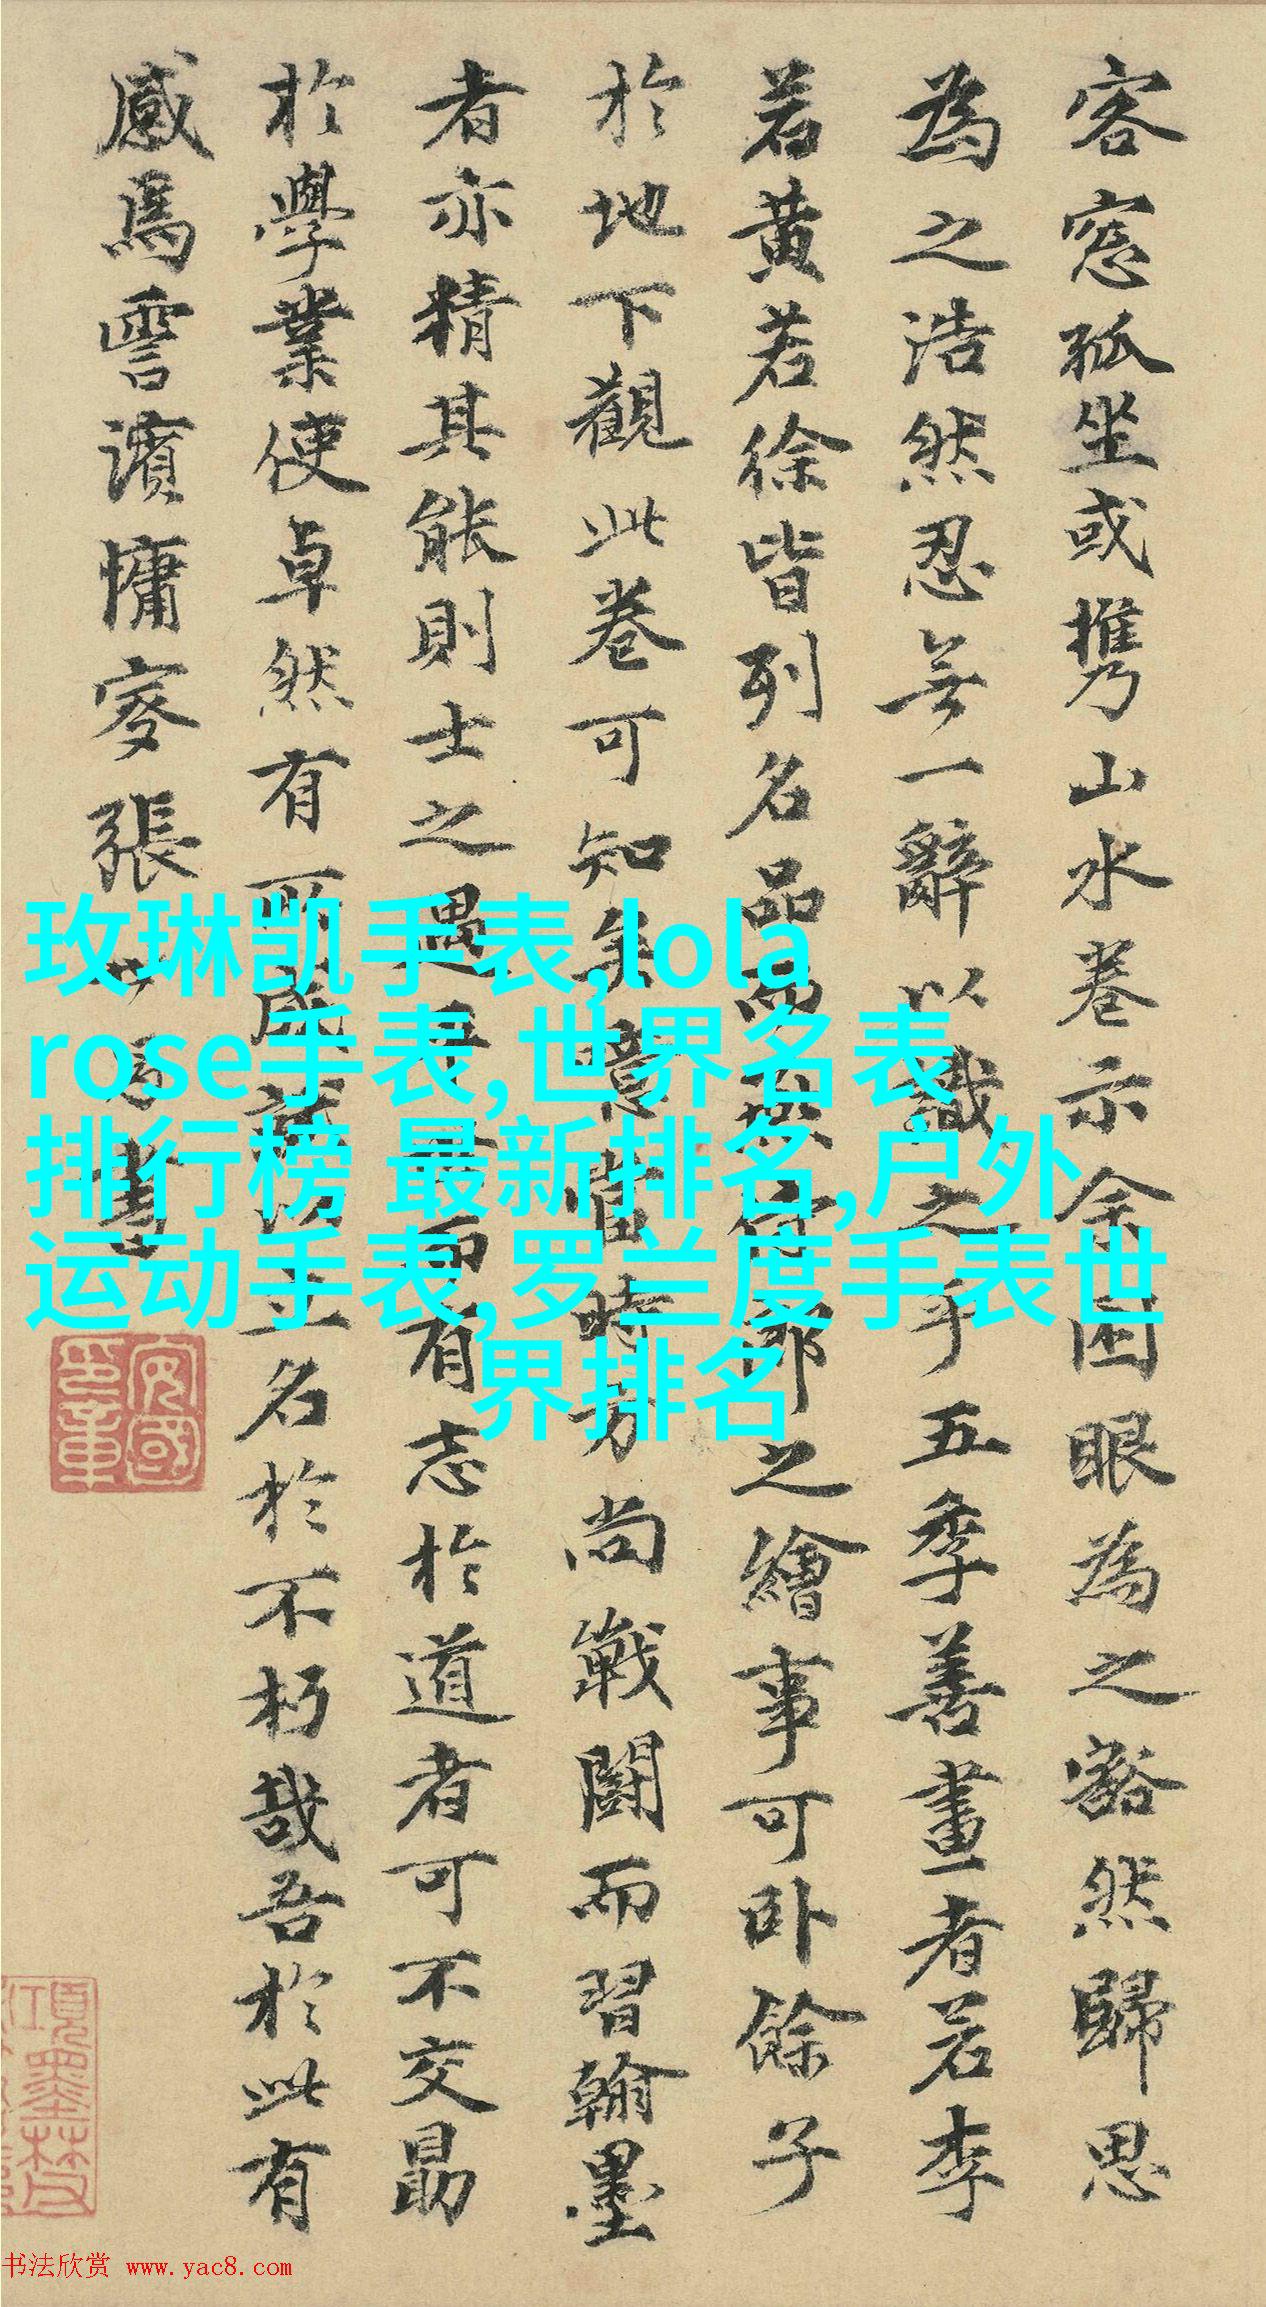 客窓孤坐或携山水卷示余困眼為之豁然歸思
為之浩然忍無一辭以識之乎五季善畫者若李
若黄若徐皆列名品而郎之繪事可卧餘子
於地下觀此卷可知矣噫當時方尚戰鬭而習翰墨
者亦精其能則士之遇而有志於道者可不交勗
於學業使卓然有所成以立名於不朽哉吾於此有
感焉雲濱慵叟張書
玫琳凯手表,lola
rose手表,世界名表
排行榜 最新排名,户外
运动手表,罗兰度手表世
界排名
书法欣赏 www.yac8.com